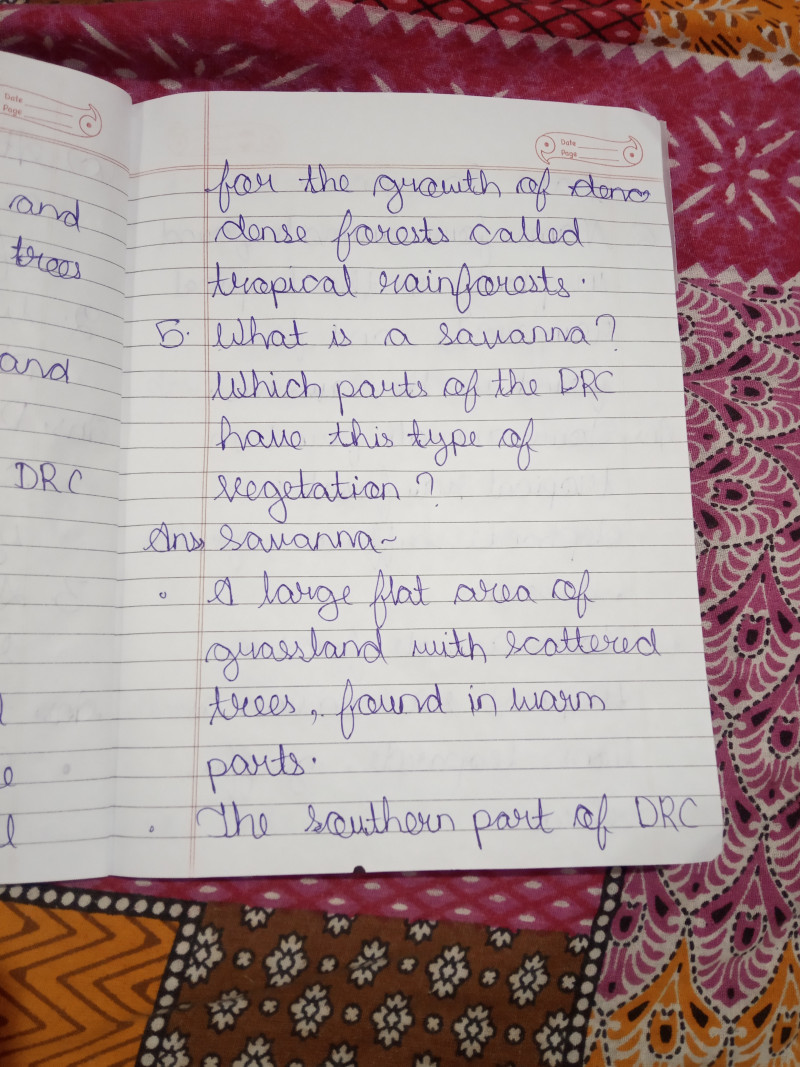 Date
Page
and
trees
and
DRC
l
e
l
Date
Page
for the growth of denc
dense forests called
tropical rainforests.
5. What is a savanna?
Which parts of the DRC
have this type of
vegetation?
Ans Savanna~
• A large flat area of
grassland with scattered
trees, found in warm
parts.
• The southern part of DRC